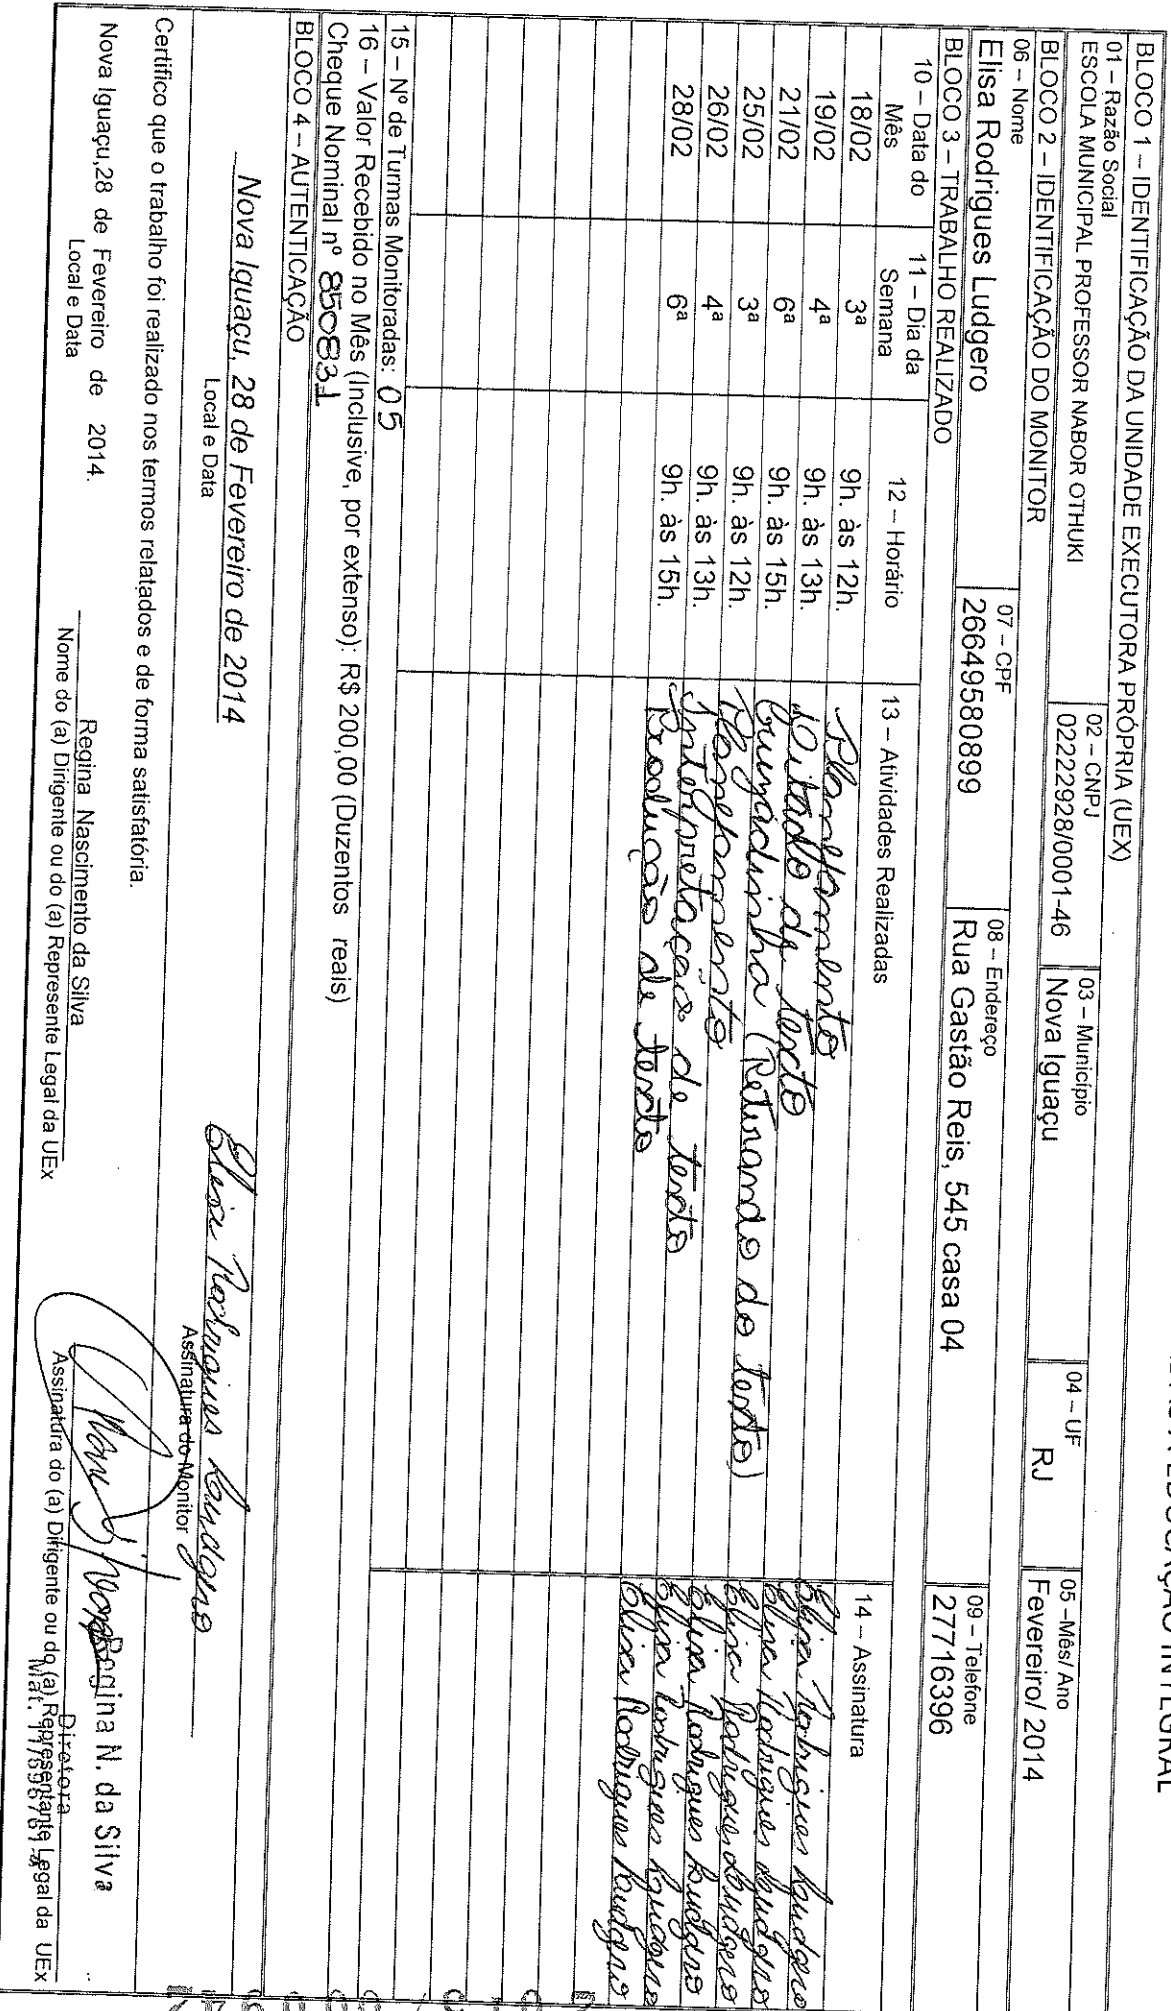 EDUCAÇÃO INTEGRAL
BLOCO 1 – IDENTIFICAÇÃO DA UNIDADE EXECUTORA PRÓPRIA (UEX)
01 – Razão Social
ESCOLA MUNICIPAL PROFESSOR NABOR OTHUKI
02 – CNPJ
02222928/0001-46
03 – Município
Nova Iguaçu
04 – UF
RJ
05 –Mês/ Ano
Fevereiro/ 2014
BLOCO 2 – IDENTIFICAÇÃO DO MONITOR
06 – Nome
Elisa Rodrigues Ludgero
07 – CPF
26649580899
08 – Endereço
Rua Gastão Reis, 545 casa 04
09 – Telefone
27716396
BLOCO 3 – TRABALHO REALIZADO
10 – Data do Mês
11 – Dia da Semana
12 – Horário
13 – Atividades Realizadas
14 – Assinatura
18/02 3ª 9h. às 12h. Planejamento Elisa Rodrigues Ludgero
19/02 4ª 9h. às 13h. Ditado de texto Elisa Rodrigues Ludgero
21/02 6ª 9h. às 15h. Cruzadinha (Retirando do texto) Elisa Rodrigues Ludgero
25/02 3ª 9h. às 12h. Planejamento Elisa Rodrigues Ludgero
26/02 4ª 9h. às 13h. Interpretação de texto Elisa Rodrigues Ludgero
28/02 6ª 9h. às 15h. Produção de texto Elisa Rodrigues Ludgero
15 – Nº de Turmas Monitoradas: 05
16 – Valor Recebido no Mês (Inclusive, por extenso): R$ 200,00 (Duzentos reais)
Cheque Nominal nº 850831
BLOCO 4 – AUTENTICAÇÃO
Nova Iguaçu, 28 de Fevereiro de 2014
Local e Data
Elisa Rodrigues Ludgero
Assinatura do Monitor
Certifico que o trabalho foi realizado nos termos relatados e de forma satisfatória.
Nova Iguaçu,28 de Fevereiro de 2014.
Local e Data
Regina Nascimento da Silva
Nome do (a) Dirigente ou do (a) Represente Legal da UEx
Regina N. da Silva
Diretora
Assinatura do (a) Dirigente ou do (a) Representante Legal da UEx